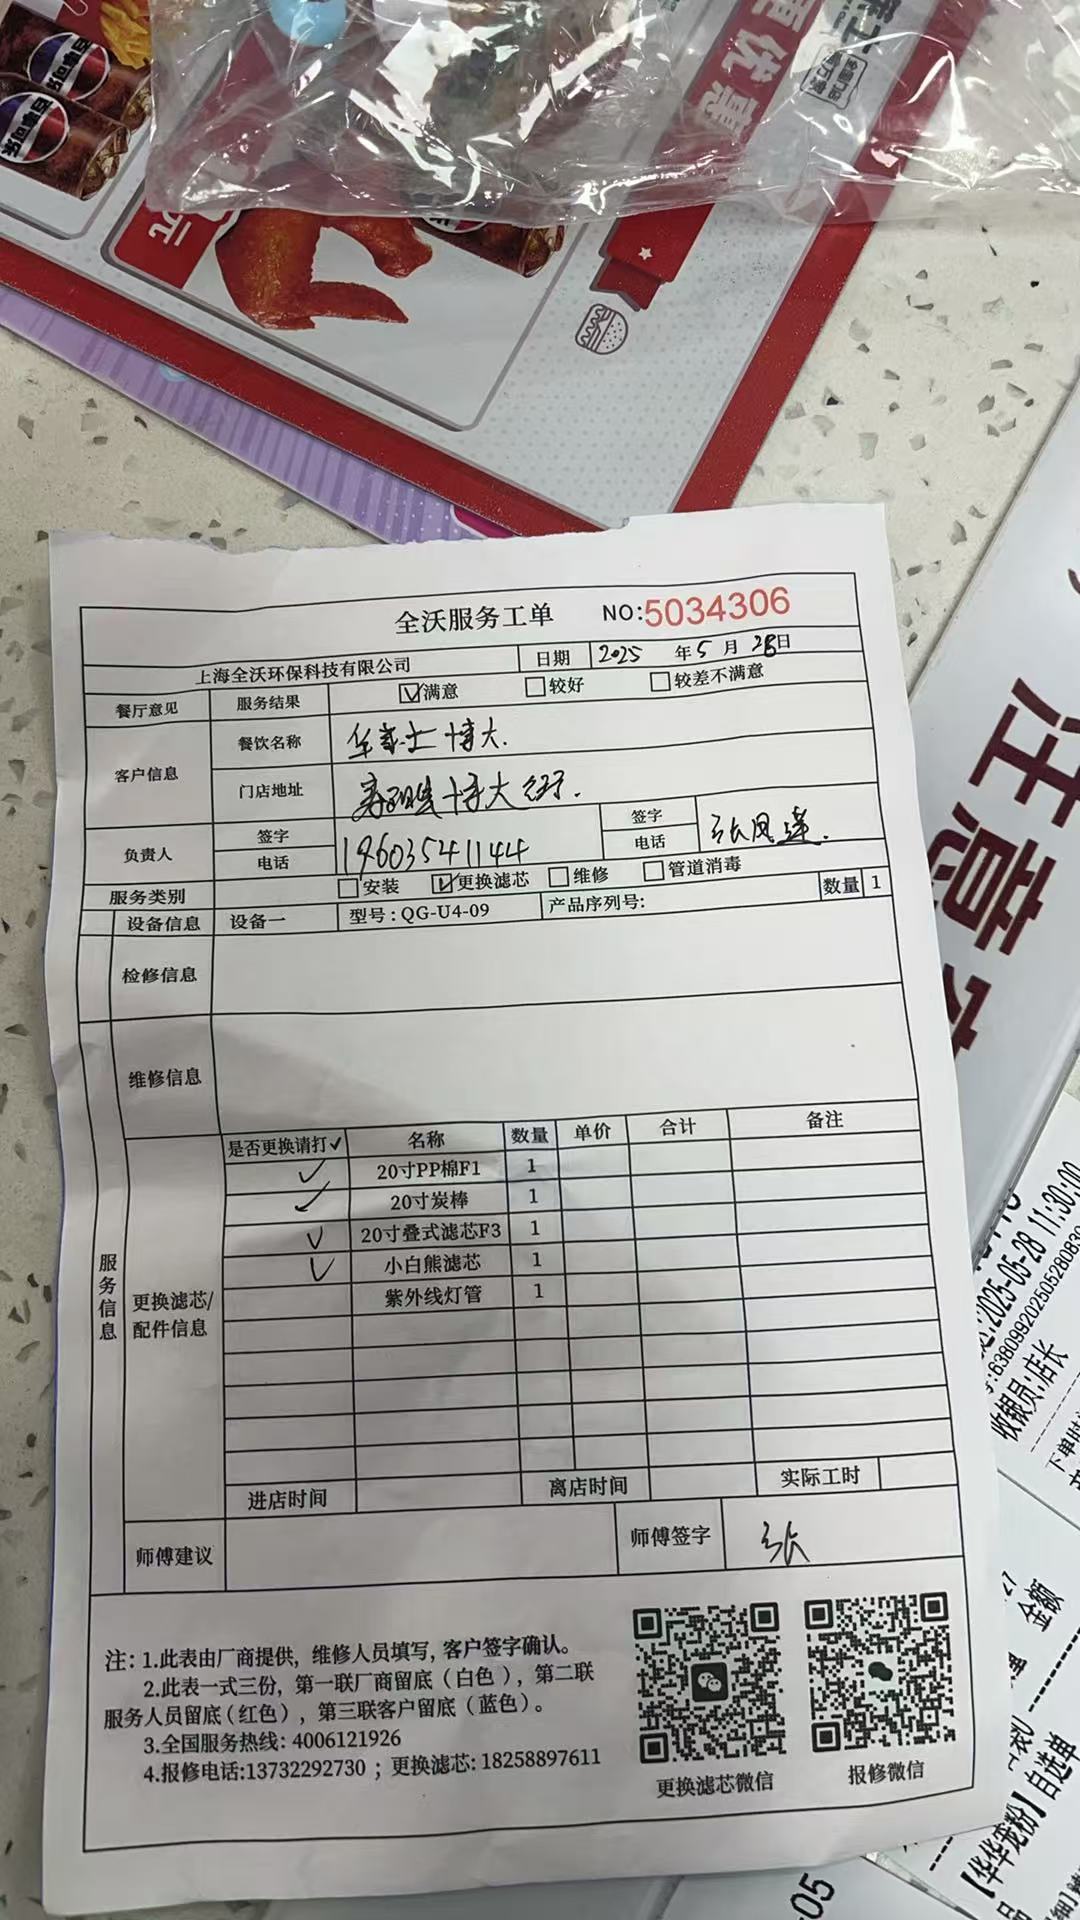 元
更优惠
注意
全沃服务工单 NO:5034306
上海全沃环保科技有限公司 日期 2025 年 5 月 28 日
餐厅意见 服务结果 ☑满意 □较好 □较差不满意
客户信息 餐饮名称 华莱士博大.
门店地址 博大街.
负责人 签字 签字 张凤莲.
电话 19603541144 电话
服务类别 □安装 ☑更换滤芯 □维修 □管道消毒
设备信息 设备一 型号:QG-U4-09 产品序列号: 数量 1
检修信息
维修信息
服务信息
更换滤芯/配件信息
是否更换请打✓ 名称 数量 单价 合计 备注
✓ 20寸PP棉F1 1
✓ 20寸炭棒 1
✓ 20寸叠式滤芯F3 1
✓ 小白熊滤芯 1
紫外线灯管 1
进店时间 离店时间 实际工时
师傅建议 师傅签字 张
注:1.此表由厂商提供，维修人员填写,客户签字确认。
2.此表一式三份，第一联厂商留底（白色），第二联
服务人员留底(红色)，第三联客户留底（蓝色）。
3.全国服务热线: 4006121926
4.报修电话:13732292730 ；更换滤芯: 18258897611
更换滤芯微信 报修微信
:2025-05-28 11:30:00
收银员:店长
金额
【华华宠粉】自选单
-05